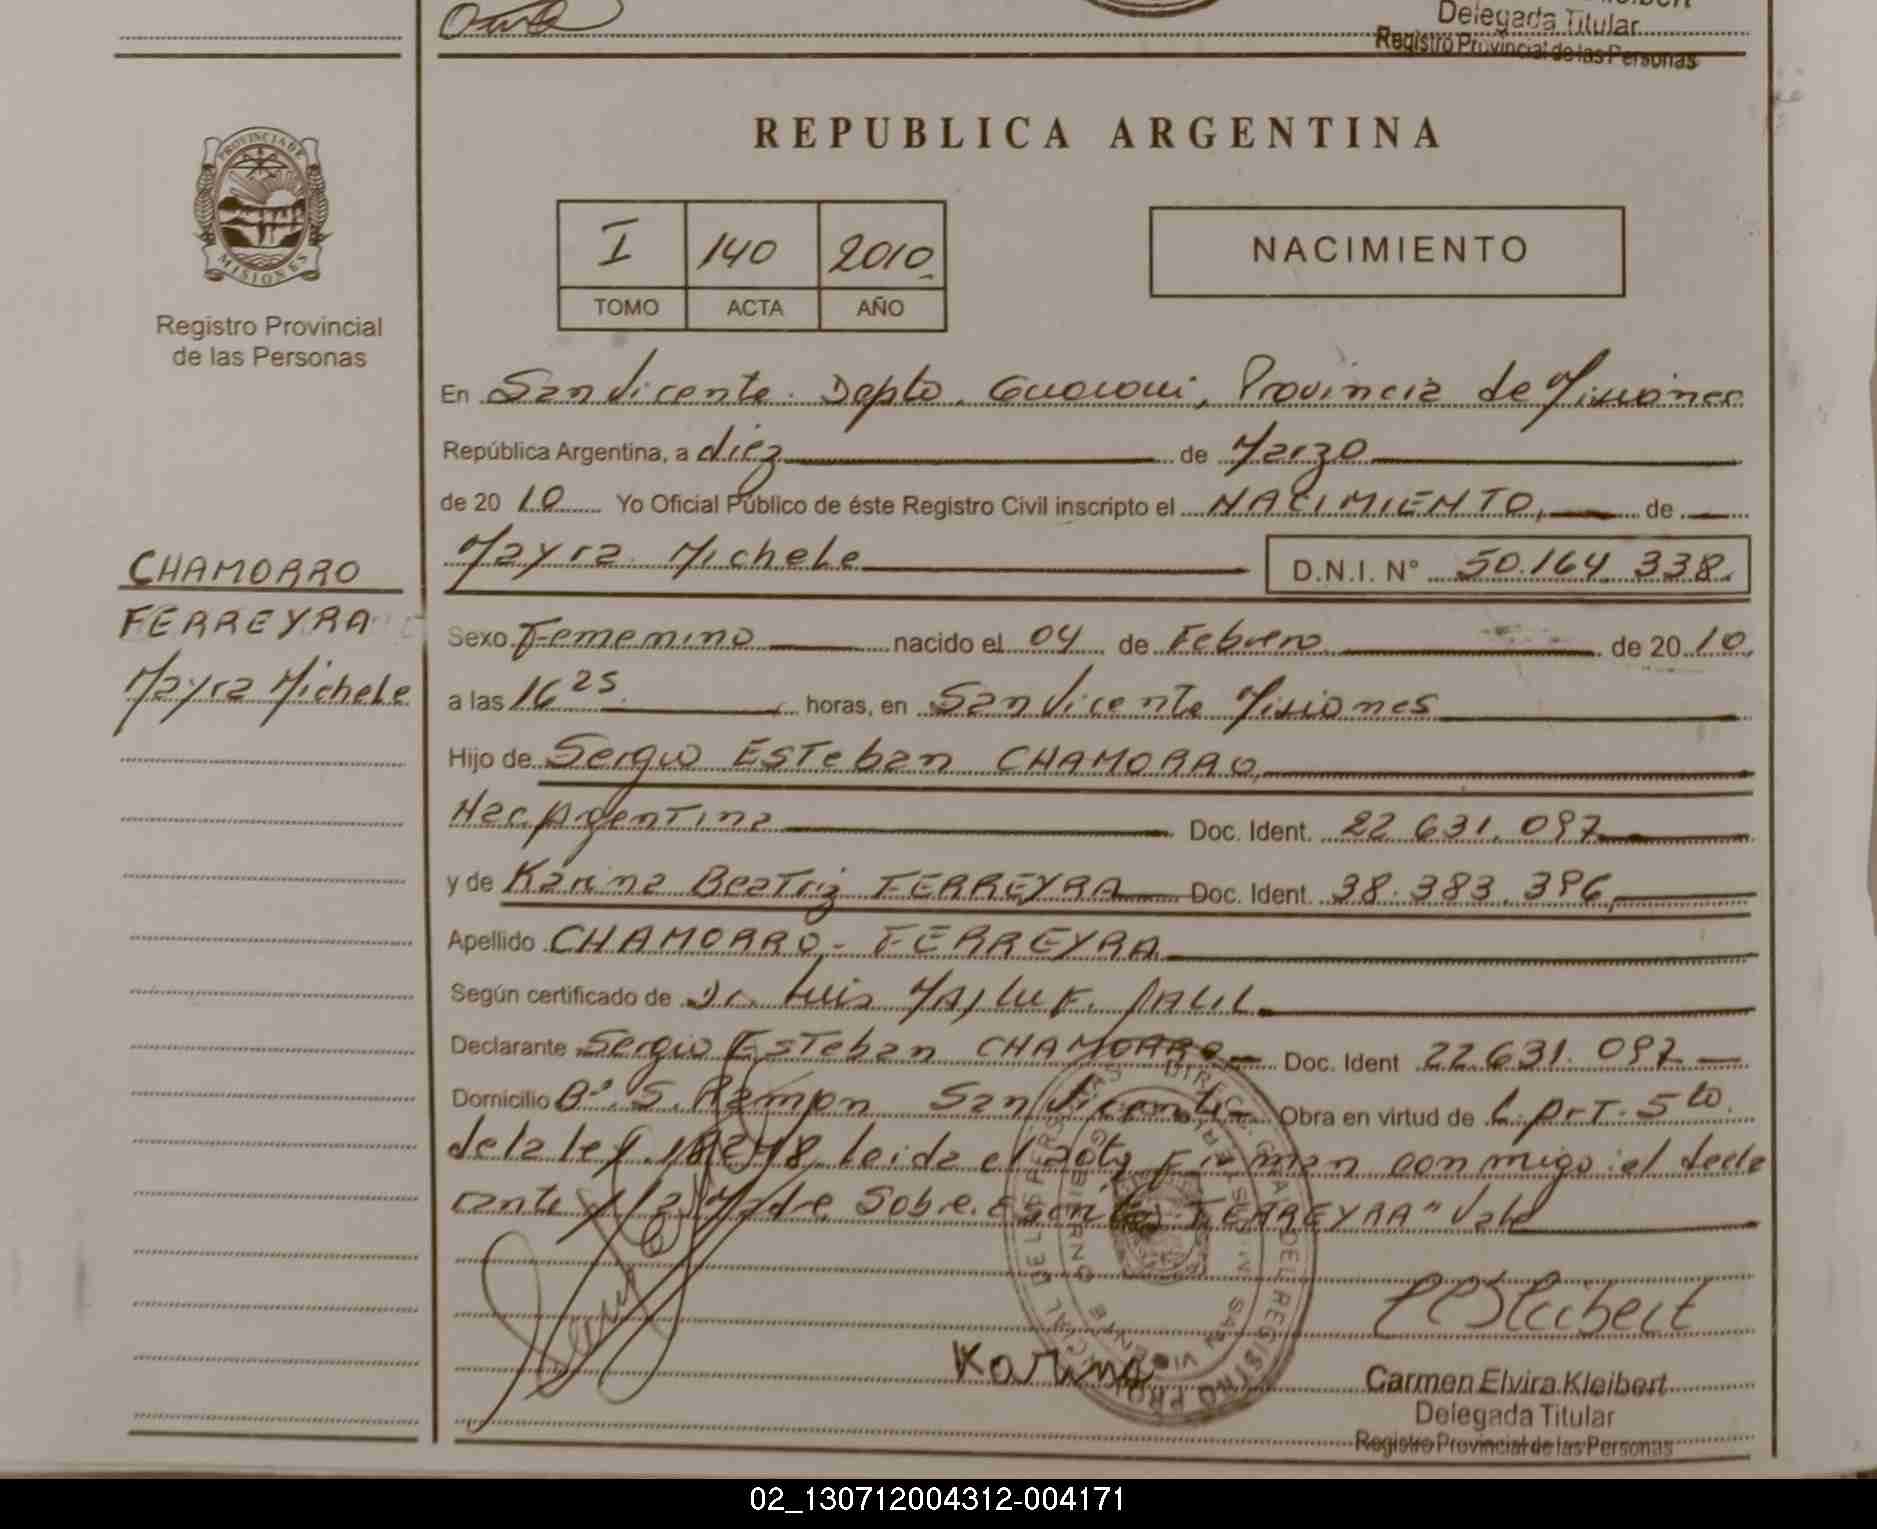 Delegada Titular
Registro Provincial de las Personas
REPUBLICA ARGENTINA
PROVINCIA DE
MISIONES
Registro Provincial
de las Personas
I 140 2010
TOMO ACTA AÑO
NACIMIENTO
En San Vicente. Depto. Guarani, Provincia de Misiones
República Argentina, a diez de Marzo
de 2010 Yo Oficial Público de éste Registro Civil inscripto el NACIMIENTO, de
Mayra Michele D.N.I. N° 50.164.338.
CHAMORRO
FERREYRA
Mayra Michele
Sexo Femenino nacido el 04 de Febrero de 2010
a las 16 25 horas, en San Vicente Misiones
Hijo de Sergio Esteban CHAMORRO
Nac. Argentina Doc. Ident. 22.631.097
y de Karina Beatriz FERREYRA Doc. Ident. 38.383.396,
Apellido CHAMORRO - FERREYRA
Según certificado de Dr. Luis
Declarante Sergio Esteban CHAMORRO Doc. Ident 22.631.097
Domicilio B° S. Ramon San Vicente Obra en virtud de L. Art. 5to
de la ley 18248 leida el acta firman conmigo el decla
rante y la Madre Sobre escrito "FERREYRA" Vale
Karina
Carmen Elvira Kleibert
Delegada Titular
Registro Provincial de las Personas
02_130712004312-004171